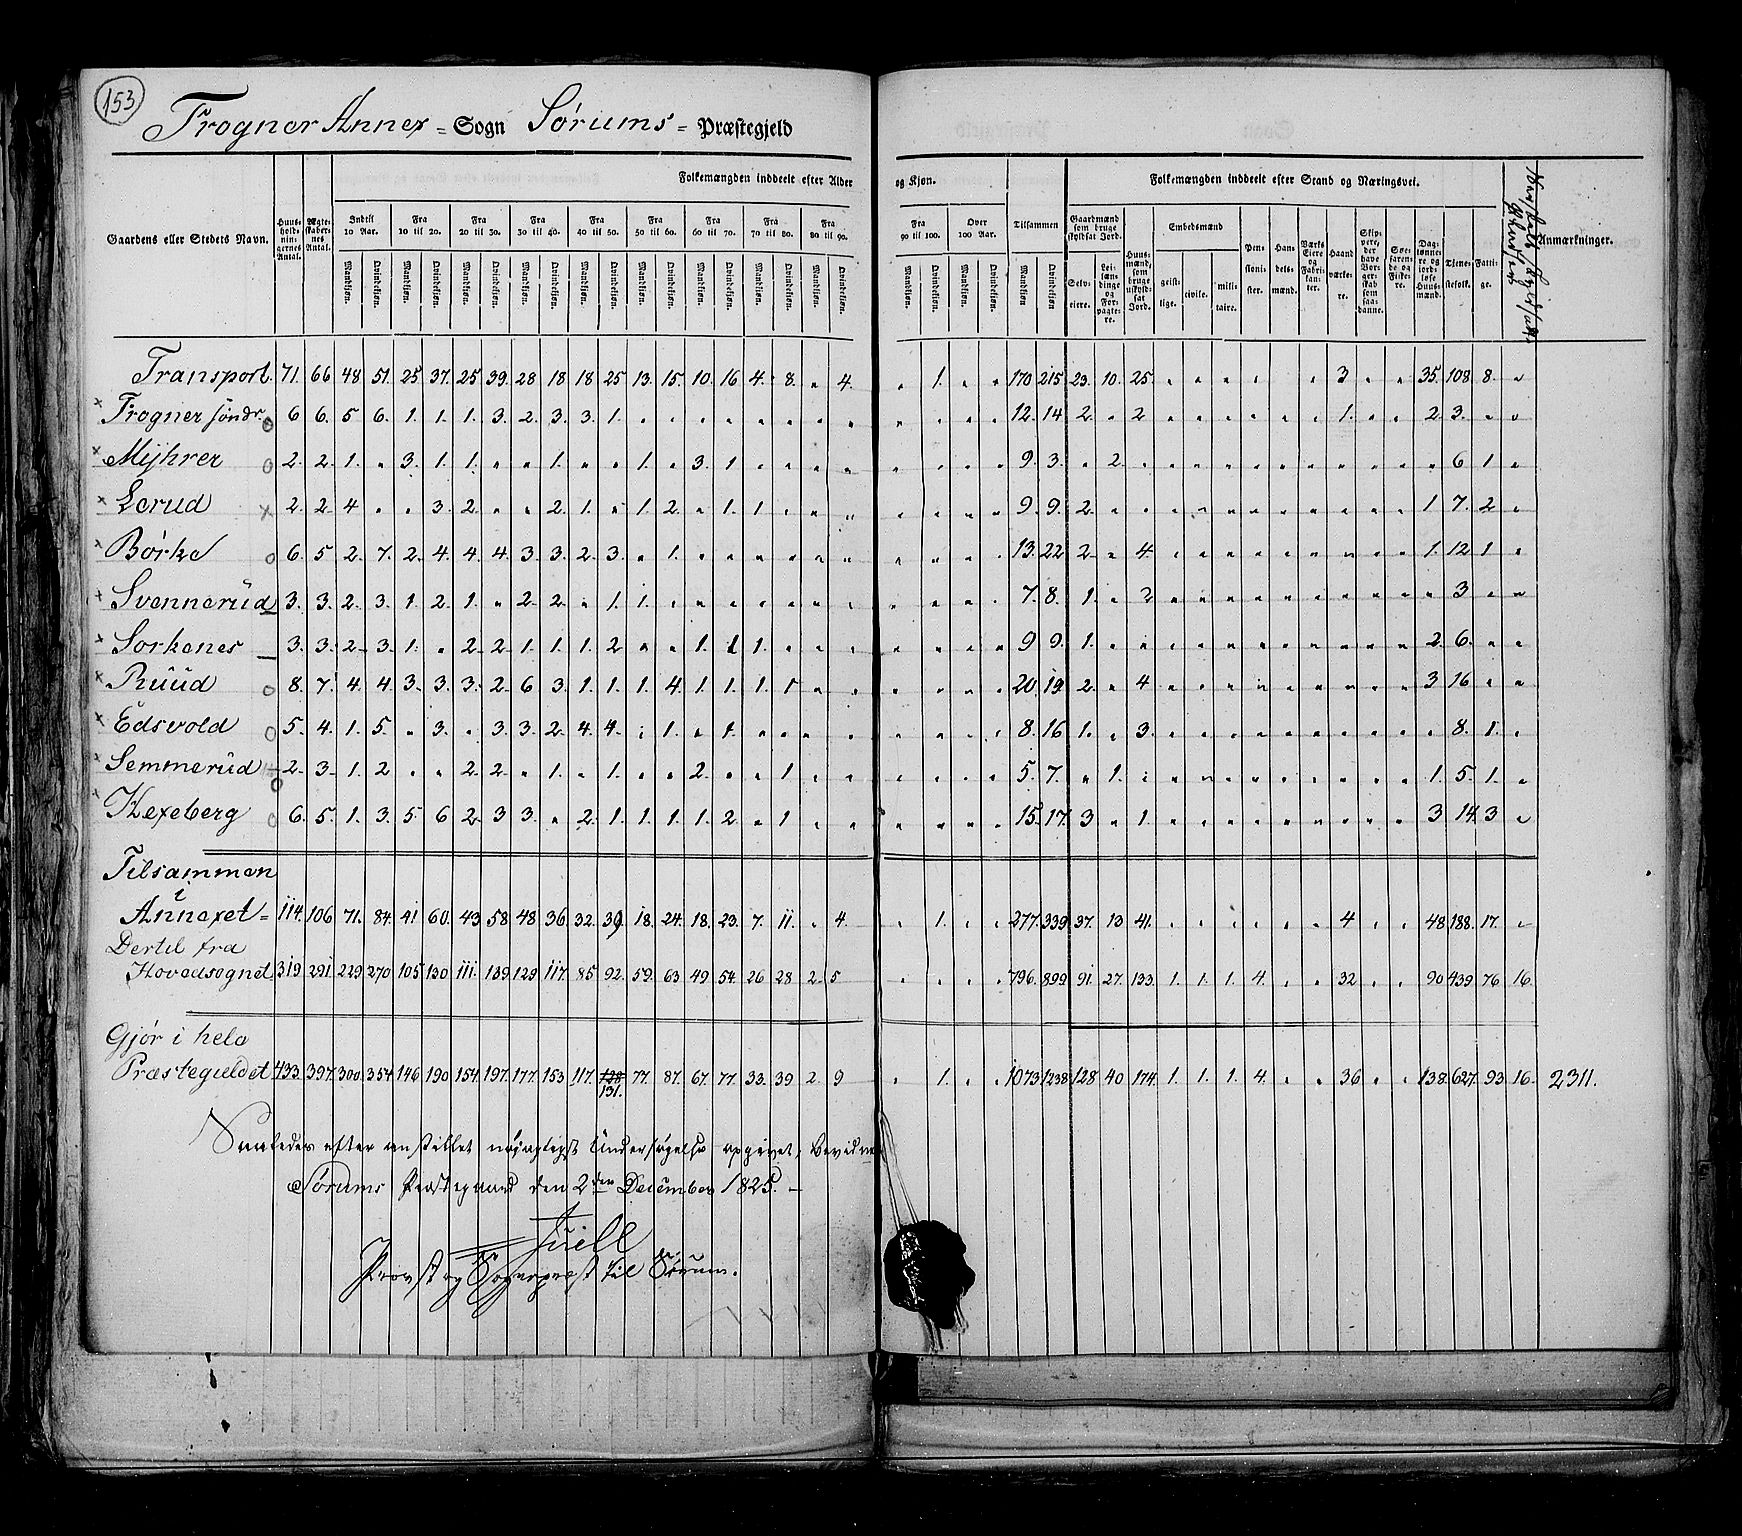 153
Frogner Annex = Sogn Sørums = Præstegjeld
Folkemængden inddeelt efter Alder og Kjøn. Folkemængden inddeelt efter Stand og Næringsvei.
Gaardens eller Stedets Navn. Huusholdningernes Antal. Ægteskabernes Antal. Indtil 10 Aar. Fra 10 til 20. Fra 20 til 30. Fra 30 til 40. Fra 40 til 50. Fra 50 til 60. Fra 60 til 70. Fra 70 til 80. Fra 80 til 90. Fra 90 til 100. Over 100 Aar. Tilsammen Gaardmænd som bruge skyldsat Jord. Huusmænd, som bruge uskyldsat Jord. Embedsmænd Pensionister. Handelsmænd. Værks Eiere og Fabrikanter. Haandværkere. Skippere, der have Borgerskab som saadanne. Søefarende og Fiskere. Daglønnere og jordløse Huusmænd. Tjenestefolk. Fattige. Anmærkninger.
Mandkjøn. Qvindekjøn. Selveiere. Leilændinge og Forpagtere. geistlige. civile. militaire.
Transport. 71. 66 48 51. 25. 37. 25 39. 28 18 18 25. 13. 15. 10. 16 4. 8. " 4. " 1. " " 170 215 23. 10. 25. " " " " " " 3 " " 35. 108. 8. "
Frogner søndr. 6 6. 5 6. 1. 1. 1. 3. 2. 3. 3. 1. " " " " " " " " " " " " 12. 14 2. " 2 " " " " " " 1. " " 2. 3. " "
Mijhrer 2. 2. 1. " 3. 1. 1. " " 1. " " 1. " 3. 1 " " " " " " " " 9. 3. " 2. " " " " " " " " " " " 6 1 "
Lerud 2. 2. 4 " " 3. 2. " " 2. 1. " 1. 2. " 1. 1. " " " " " " " 9. 9. 2. " " " " " " " " " " " 1 7. 2 "
Børke 6. 5 2. 7. 2. 4. 4. 4. 3. 3. 2. 3. " 1. " " " " " " " " " " 13. 22 2. " 4. " " " " " " " " " 1. 12 1 "
Svennerud 3. 3. 2. 3. 1. 2. 1. " 2. 2. " 1. 1. " " " " " " " " " " " 7. 8. 1. " 2 " " " " " " " " " " 3 " "
Sorkenes 3. 3. 2. 3. 1. " 2. 2. 1. 1. 1. 2 " " 1. 1 1. " " " " " " " 9 9. 1. " " " " " " " " " " " 2. 6. " "
Ruud 8. 7. 4. 4. 3. 3. 3. 2. 6 3. 1. 1. 1. 4. 1. 1. 1. 1 " " " " " " 20. 19. 2. " 4 " " " " " " " " " 3 16 " "
Edsvold 5. 4. 1. 5. " 3. " 3. 3. 2. 4. 4. " 1. " 1. " " " " " " " " 8. 16 1. " 3. " " " " " " " " " " 8. 1. "
Semmerud 2. 3. 1. 2 " " 2. 2. " 1. " 1. " " 2. " " 1. " " " " " " 5. 7. " 1. " " " " " " " " " " 1. 5. 1. "
Kexeberg 6. 5. 1. 3. 5. 6 2. 3 3. " 2. 1. 1. 1. 1. 2. " 1 " " " " " " 15. 17. 3 " 1. " " " " " " " " " 3 14. 3 "
Tilsammen
i
Annexet = 114. 106 71. 84. 41 60. 43 58. 48 36 32. 39 18. 24. 18. 23. 7. 11. " 4. " 1. " " 277. 339 37. 13 41. " " " " " " 4 " " 48 188. 17. "
Dertil fra
Hovedsognet 319 291. 229. 270 105. 130. 111. 139. 129 117. 85 92. 59. 63 49 54. 26 28 2. 5 " " " " 796. 899 91. 27. 133. 1. 1. 1. 4. " " 32 " " 90 439 76 16.
Gjør i hele
Præstegieldet 433. 397. 300. 354 146 190 154. 197. 177. 153 117. 128 131. 77 87. 67. 77. 33. 39 2. 9 " 1. " " 1073 1238 128 40 174. 1. 1. 1. 4. " " 36 " " 138. 627. 93 16. 2311.
Saaledes efter anstillet nøiagtigst Undersøgelse opgivet, bevidner
Sørums Præstegaard den 2den December 1825. –
Juell
Provst og Sogneprest til Sørum.